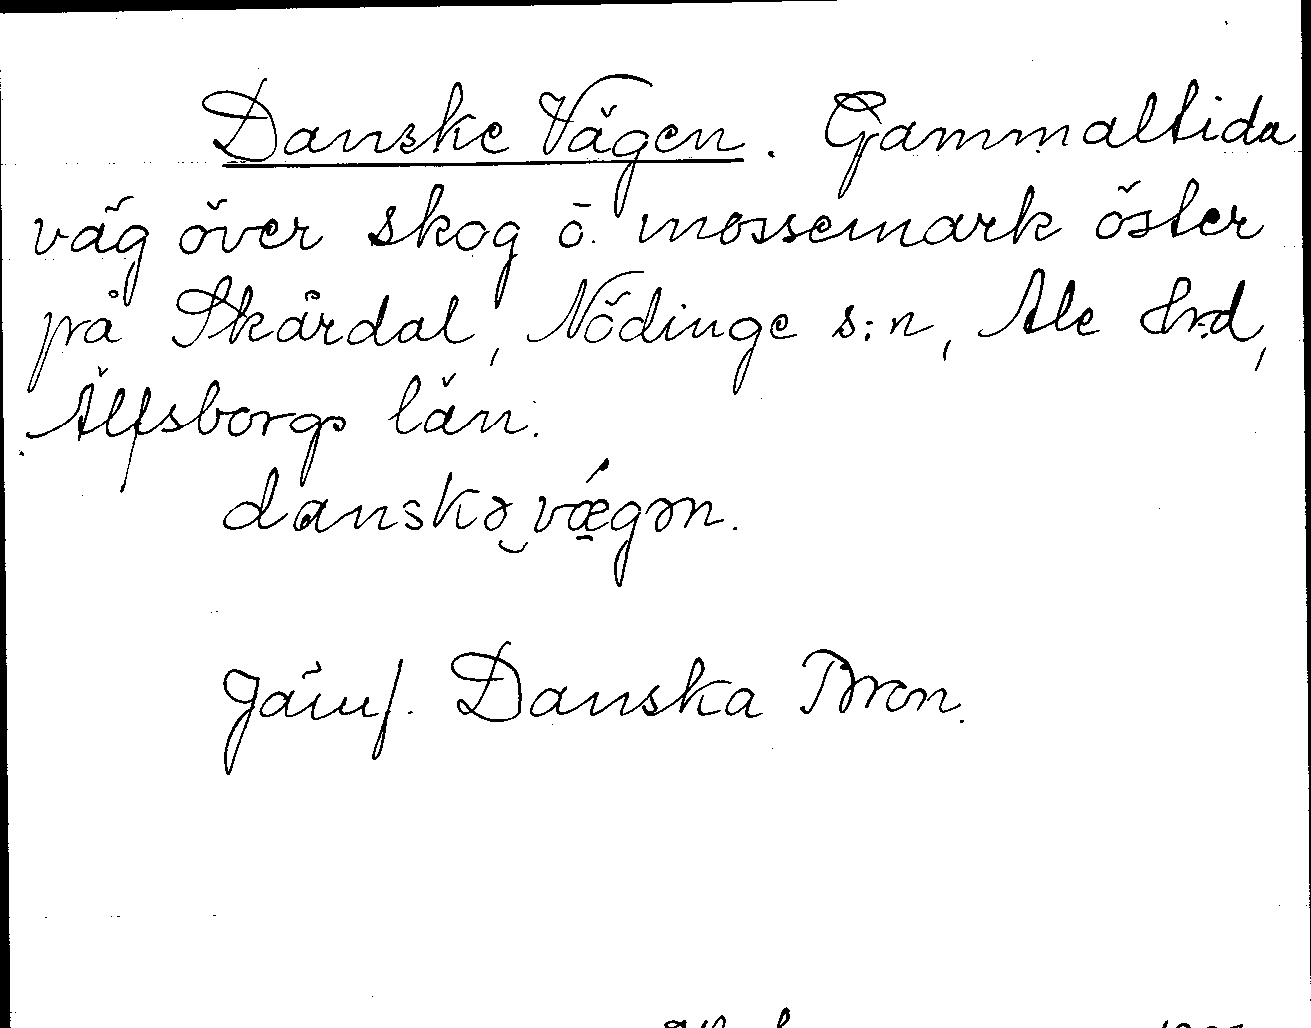 Danske Vägen. Gammaltida
väg över skog o. mossemark öster
på Skårdal, Nödinge s:n, Ale Hrd,
Älfsborgs län.
danskə vǽgən.
Jämf. Danska Bron.